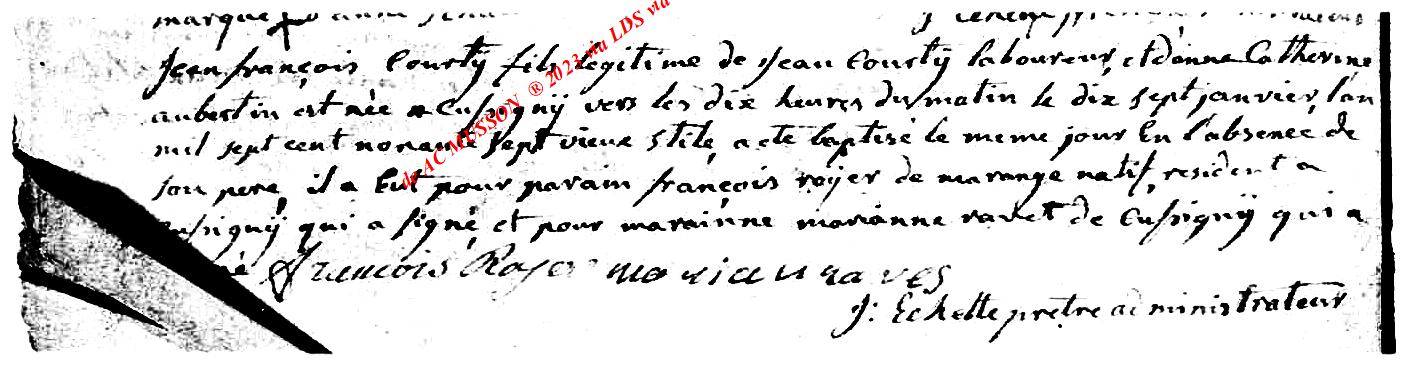 marque
Jean françois Courtÿ fils legitime de Jean Courtÿ laboureur, et danne Catherine
aubertin est née a Cussignÿ vers les dix heures du matin le dix sept janvier, l'an
mil sept cent nonante sept vieux stile, a ete baptisé le meme jour En l'absence de
son pere, il a Eut pour parain françois royer de marange natif, resident a
Cussignÿ qui a signé et pour marainne marianne ravet de Cussignÿ qui a
françois Royer
J: Echette pretre administrateur
dp AC MUSSON ® 2023 via LDS via